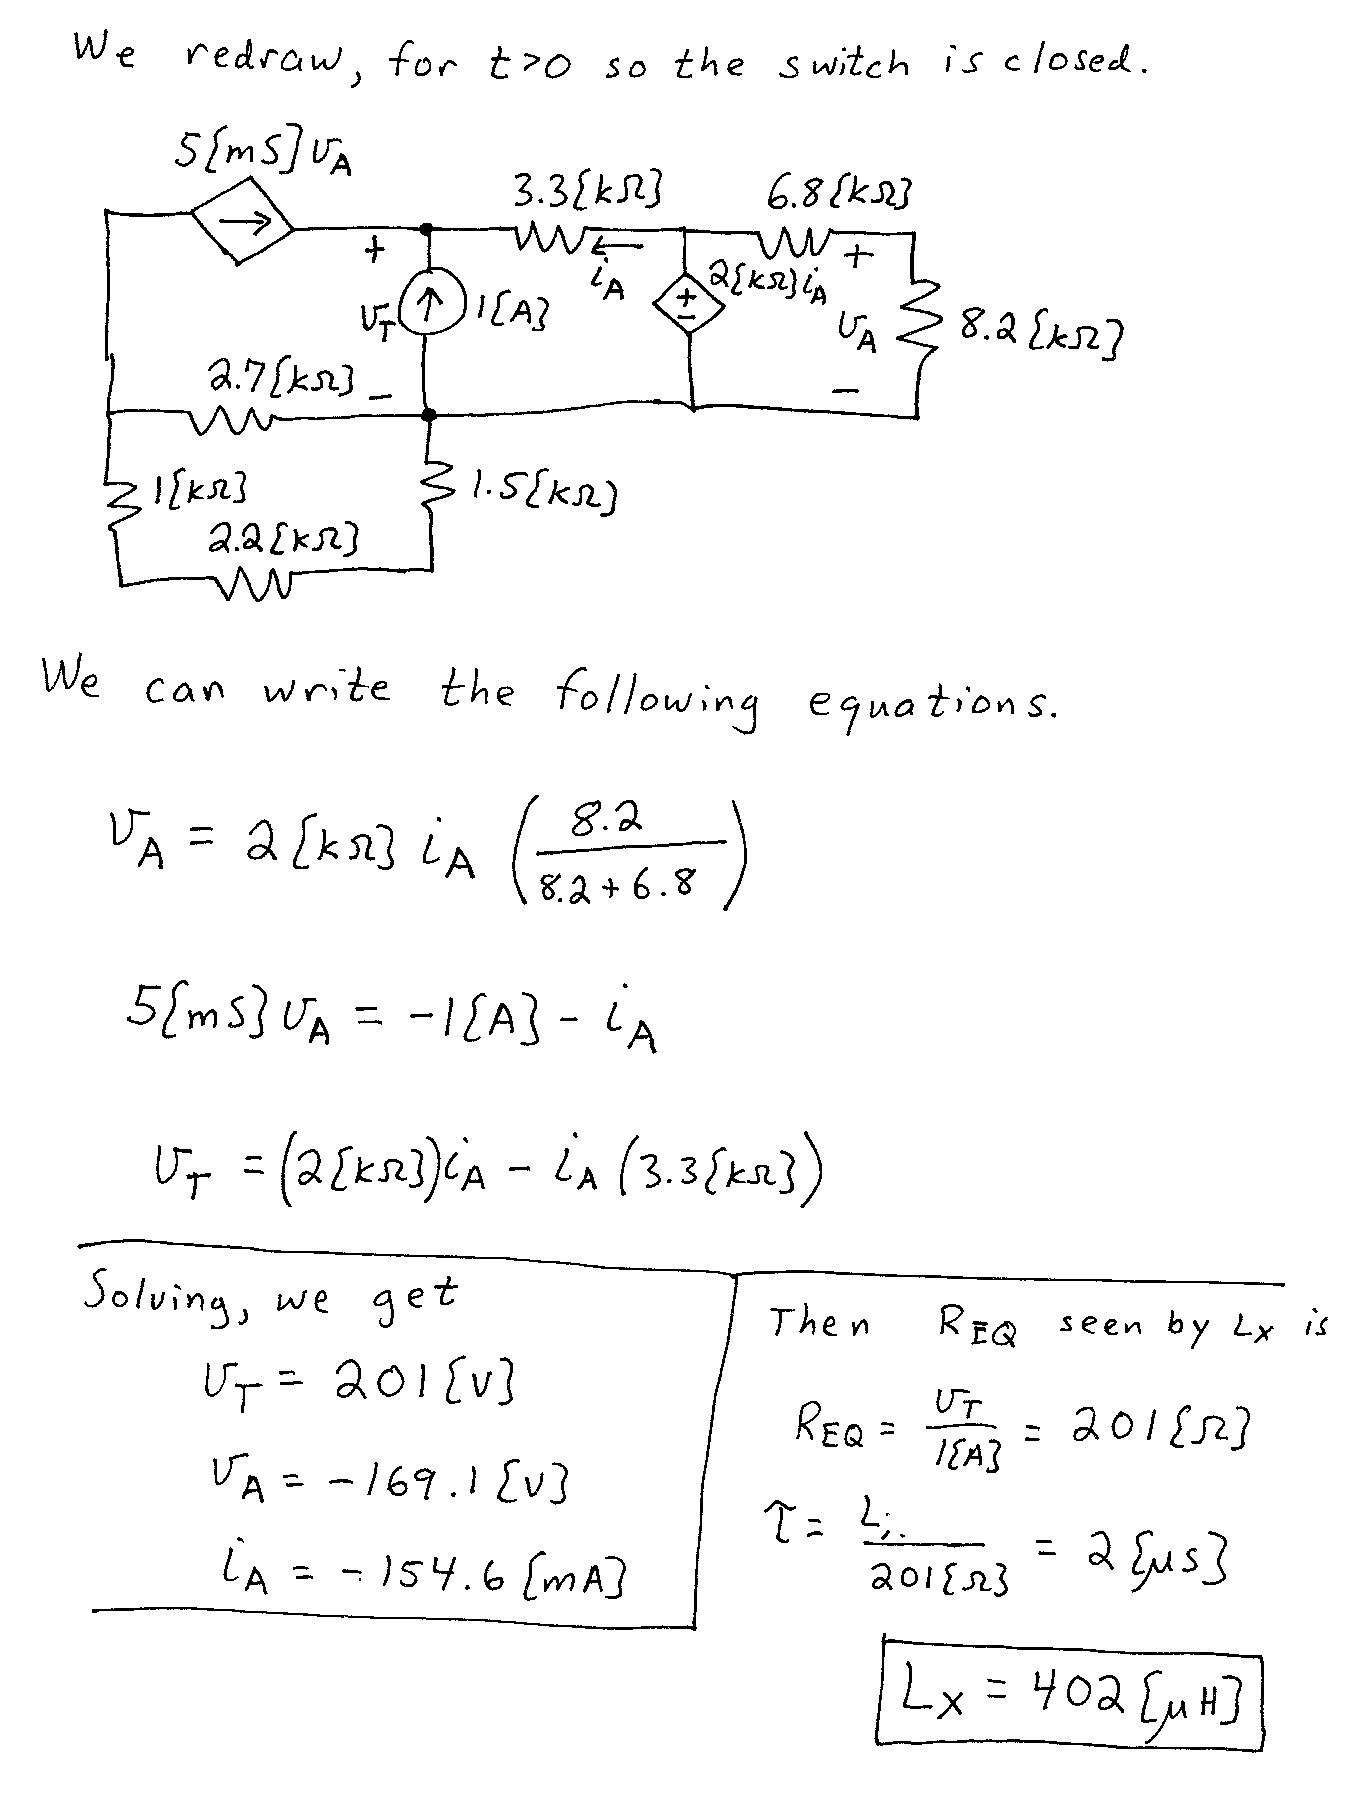 We redraw, for t>0 so the switch is closed.
5[mS]vA
3.3[kΩ]
6.8[kΩ]
+
iA
2[kΩ]iA
+
vT
1[A]
+
−
vA
8.2[kΩ]
2.7[kΩ]
−
−
1[kΩ]
1.5[kΩ]
2.2[kΩ]
We can write the following equations.
vA = 2[kΩ] iA (8.2 / (8.2 + 6.8))
5[mS]vA = -1[A] - iA
vT = (2[kΩ])iA - iA (3.3[kΩ])
Solving, we get
vT = 201[V]
vA = -169.1[V]
iA = -154.6[mA]
Then REQ seen by LX is
REQ = vT / 1[A] = 201[Ω]
τ = L / 201[Ω] = 2[μs]
LX = 402[μH]